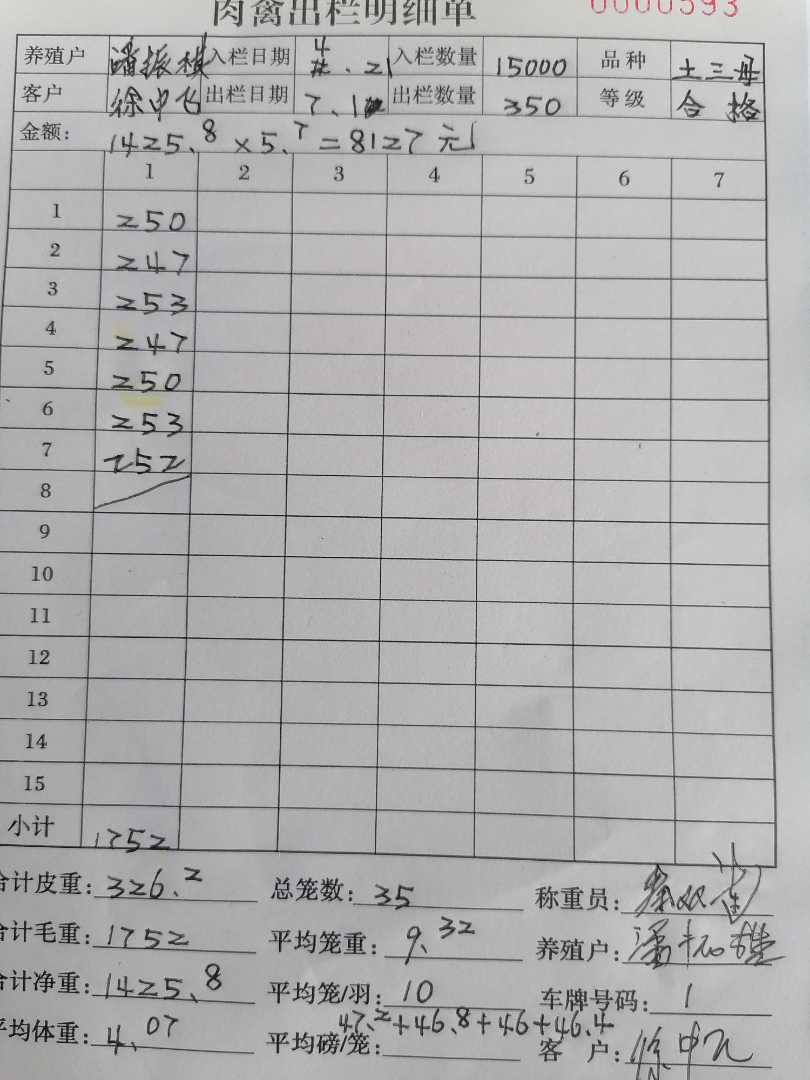 肉禽出栏明细单 0000593
养殖户 潘振棋 入栏日期 4.21 入栏数量 15000 品种 土三母
客户 徐申飞 出栏日期 7.1 出栏数量 350 等级 合格
金额: 1425.8×5.7=8127元
1 2 3 4 5 6 7
1 250
2 247
3 253
4 247
5 250
6 253
7 252
8
9
10
11
12
13
14
15
小计 1752
合计皮重: 326.2 总笼数: 35 称重员:
合计毛重: 1752 平均笼重: 9.32 养殖户:
合计净重: 1425.8 平均笼/羽: 10 车牌号码: 1
平均体重: 4.07 平均磅/笼: 47.2+46.8+46+46.4 客 户: